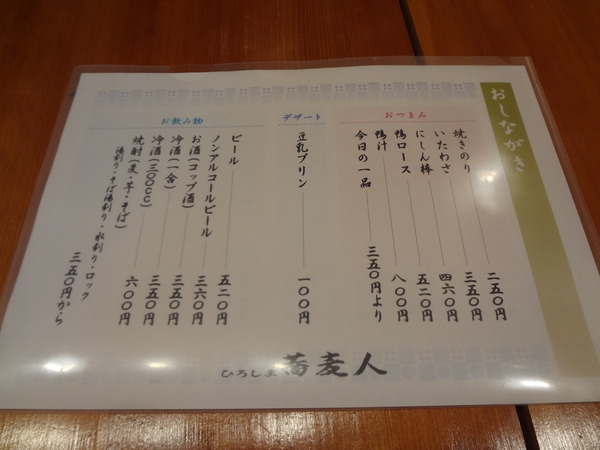 おしながき
おつまみ
焼きのり 二五〇円
いたわさ 三五〇円
にしん棒 四六〇円
鴨ロース 五二〇円
鴨汁 八〇〇円
今日の一品 三五〇円より
デザート
豆乳プリン 一〇〇円
お飲み物
ビール 五二〇円
ノンアルコールビール 三六〇円
お酒(コップ酒) 三五〇円
冷酒(一合) 三五〇円
冷酒(三〇〇cc) 六〇〇円
焼酎(麦・芋・そば)
湯割り・そば湯割り・水割り・ロック
三五〇円から
ひろしま 蕎麦人